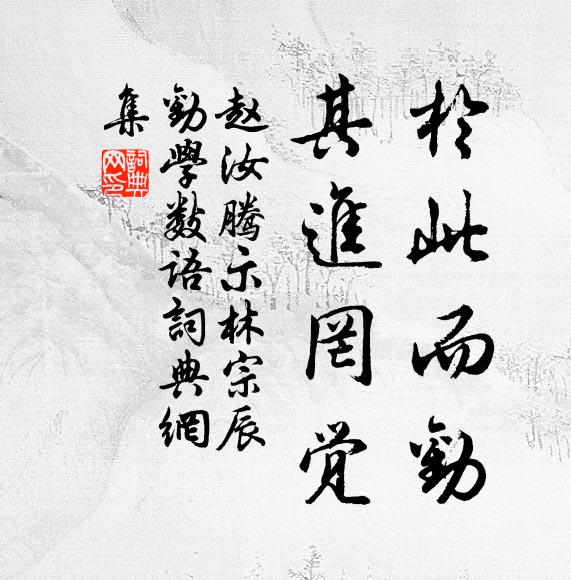 於此而勤
其進罔觉
赵汝騰示林宗辰
勤學数語詞典網
集
詞典
网印